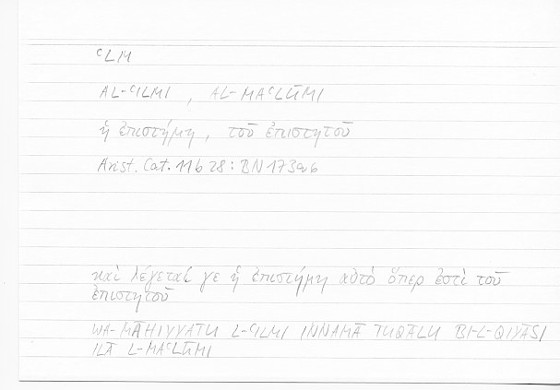 ʿLM
AL-ʿILMI , AL-MAʿLŪMI
ἡ ἐπιστήμη, τοῦ ἐπιστητοῦ
Arist. Cat. 11b28: BN 173a6
καὶ λέγεταί γε ἡ ἐπιστήμη αὐτὸ ὅπερ ἐστὶ τοῦ
ἐπιστητοῦ
WA-MĀHIYYATU L-ʿILMI INNAMĀ TUQĀLU BI-L-QIYĀSI
ILĀ L-MAʿLŪMI